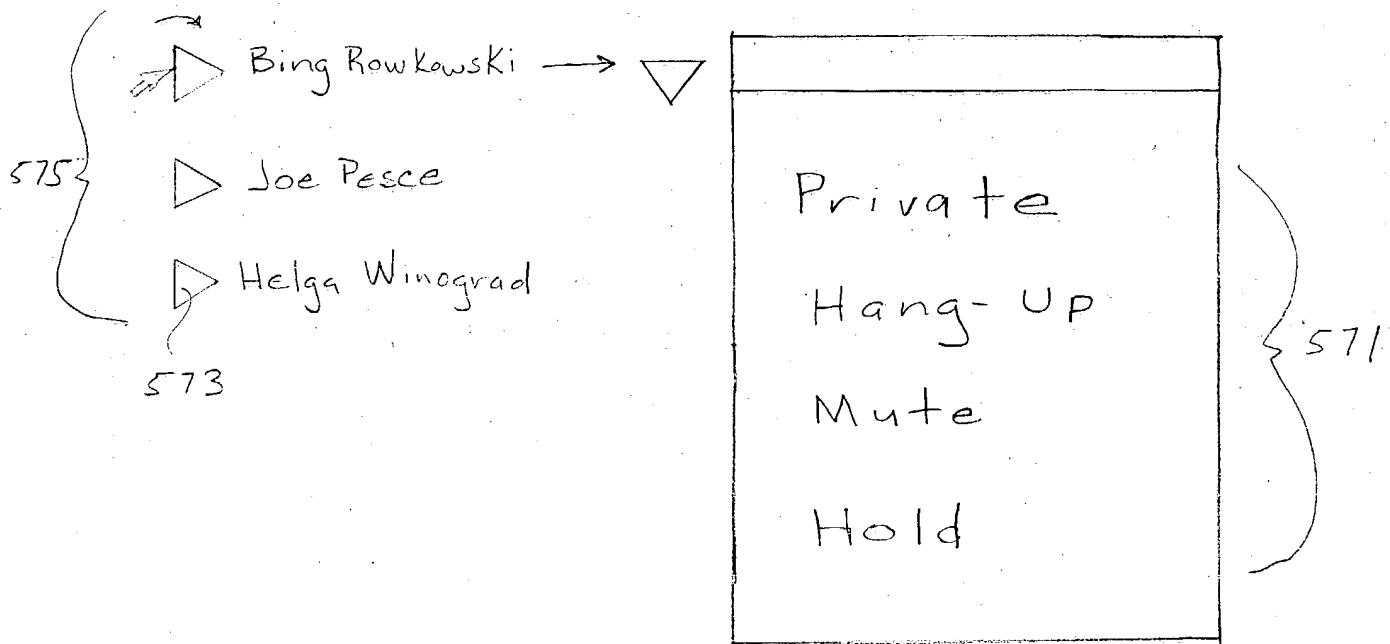 Bing Rowkowski
575
Joe Pesce
Helga Winograd
573
Private
Hang-Up
Mute
Hold
571